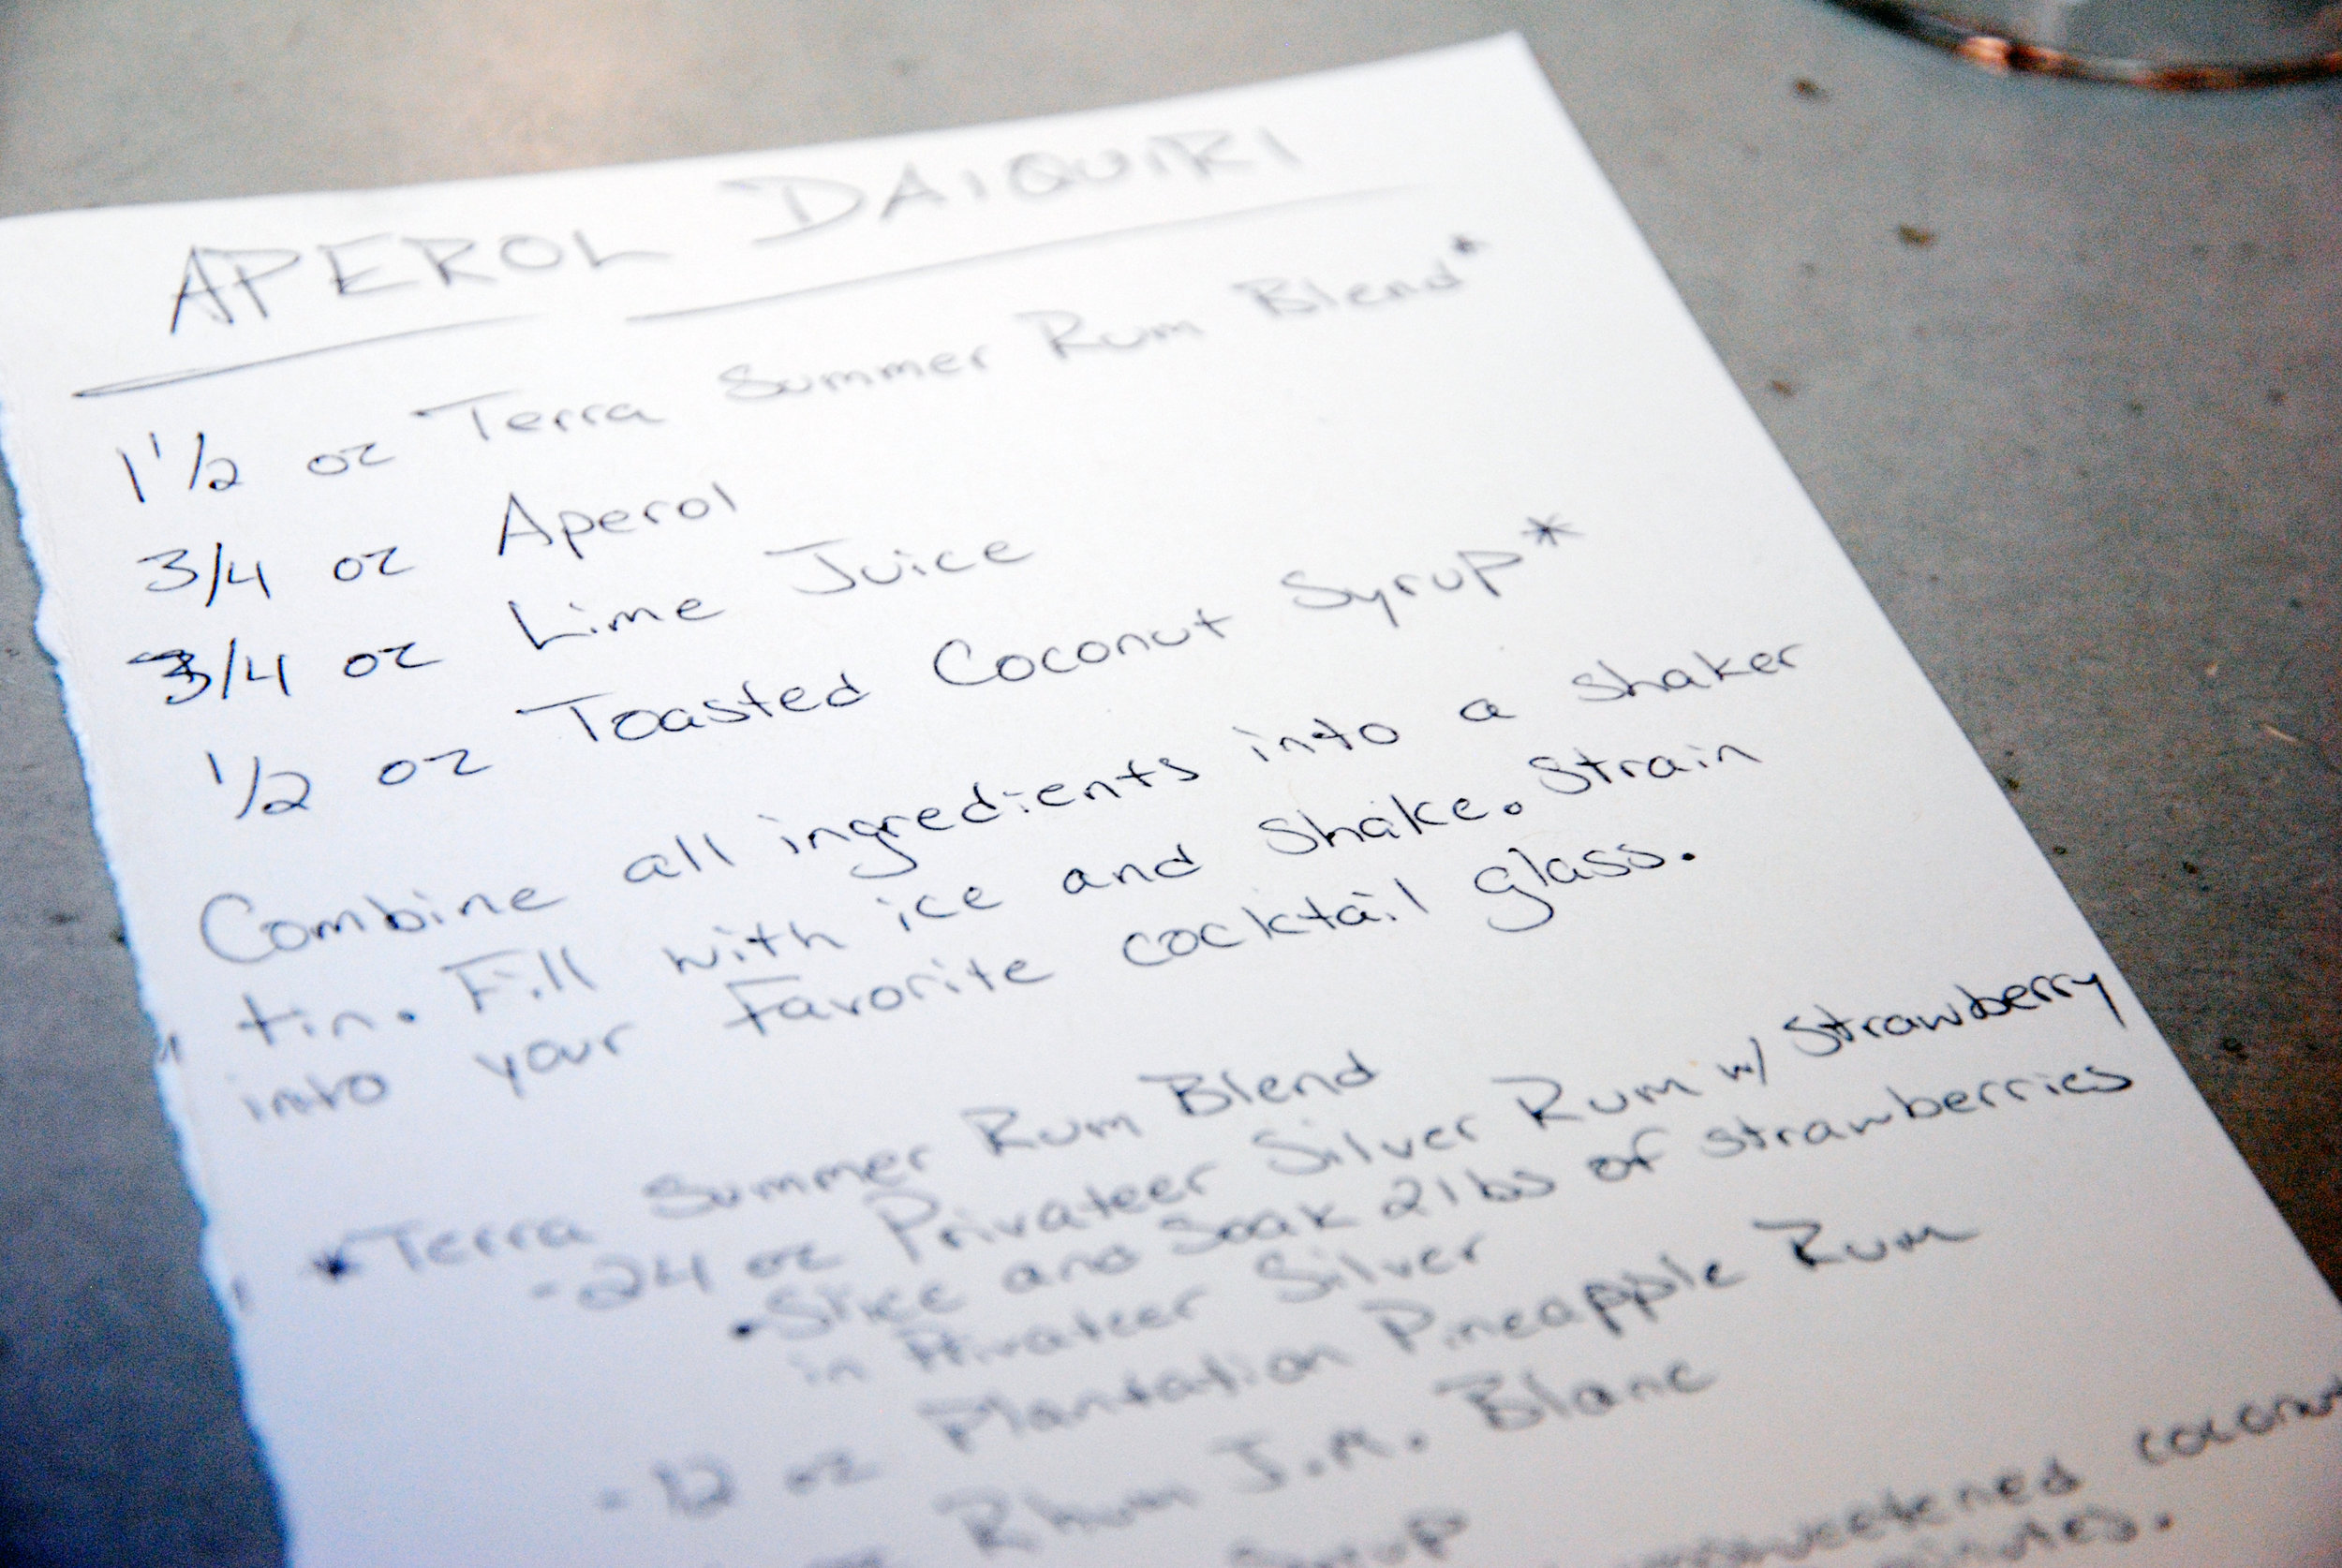 APEROL DAIQUIRI
1 1/2 oz Terra Summer Rum Blend*
3/4 oz Aperol
3/4 oz Lime Juice
1/2 oz Toasted Coconut Syrup*
Combine all ingredients into a shaker
tin. Fill with ice and shake. Strain
into your favorite cocktail glass.
*Terra Summer Rum Blend
-24 oz Privateer Silver Rum w/ Strawberry
•Slice and soak 2lbs of strawberries
in Privateer Silver
-12 oz Plantation Pineapple Rum
Rhum J.M. Blanc
Syrup
unsweetened coconut
minutes.